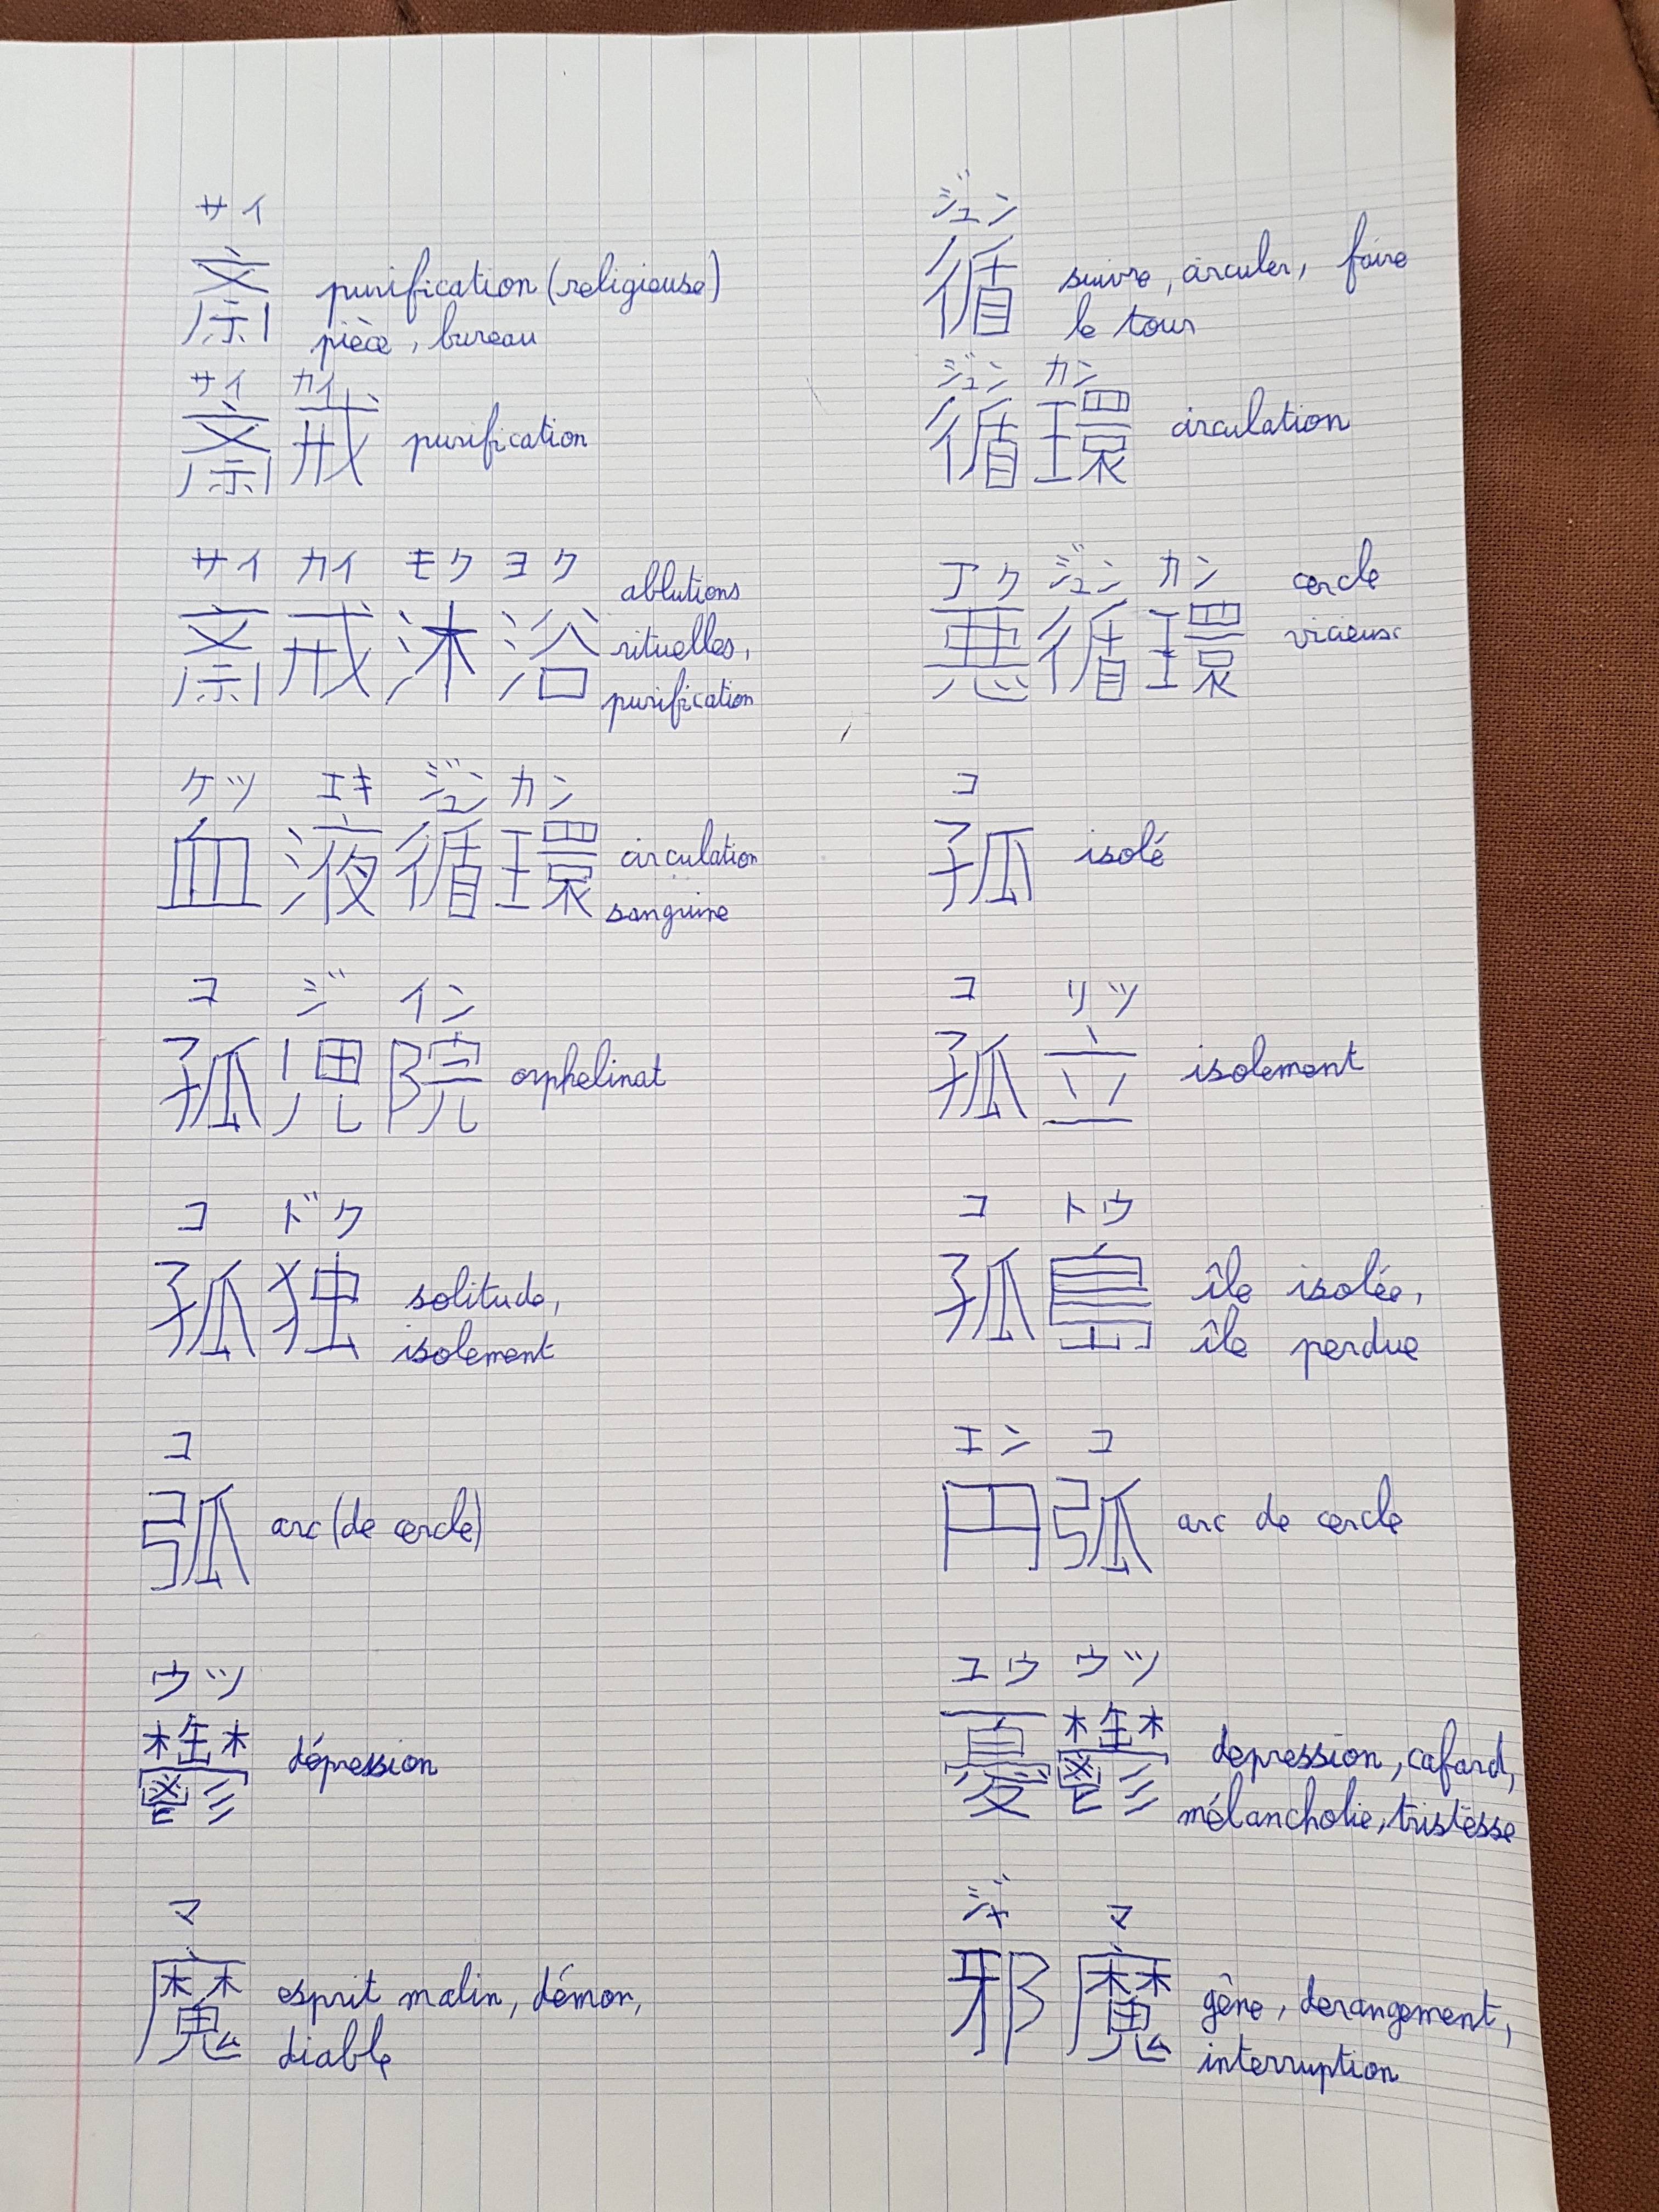 サイ
斎 purification (religieuse)
pièce, bureau
サイ カイ
斎戒 purification
サイ カイ モク ヨク
斎戒沐浴 ablutions
rituelles,
purification
ケツ エキ ジュン カン
血液循環 circulation
sanguine
コ ジ イン
孤児院 orphelinat
コ ドク
孤独 solitude,
isolement
コ
弧 arc (de cercle)
ウツ
鬱 dépression
マ
魔 esprit malin, démon,
diable
ジュン
循 suivre, circuler, faire
le tour
ジュン カン
循環 circulation
アク ジュン カン
悪循環 cercle
vicieux
コ
孤 isolé
コ リツ
孤立 isolement
コ トウ
孤島 île isolée,
île perdue
エン コ
円弧 arc de cercle
ユウ ウツ
憂鬱 depression, cafard,
mélancholie, tristesse
ジャ マ
邪魔 gêne, derangement,
interruption